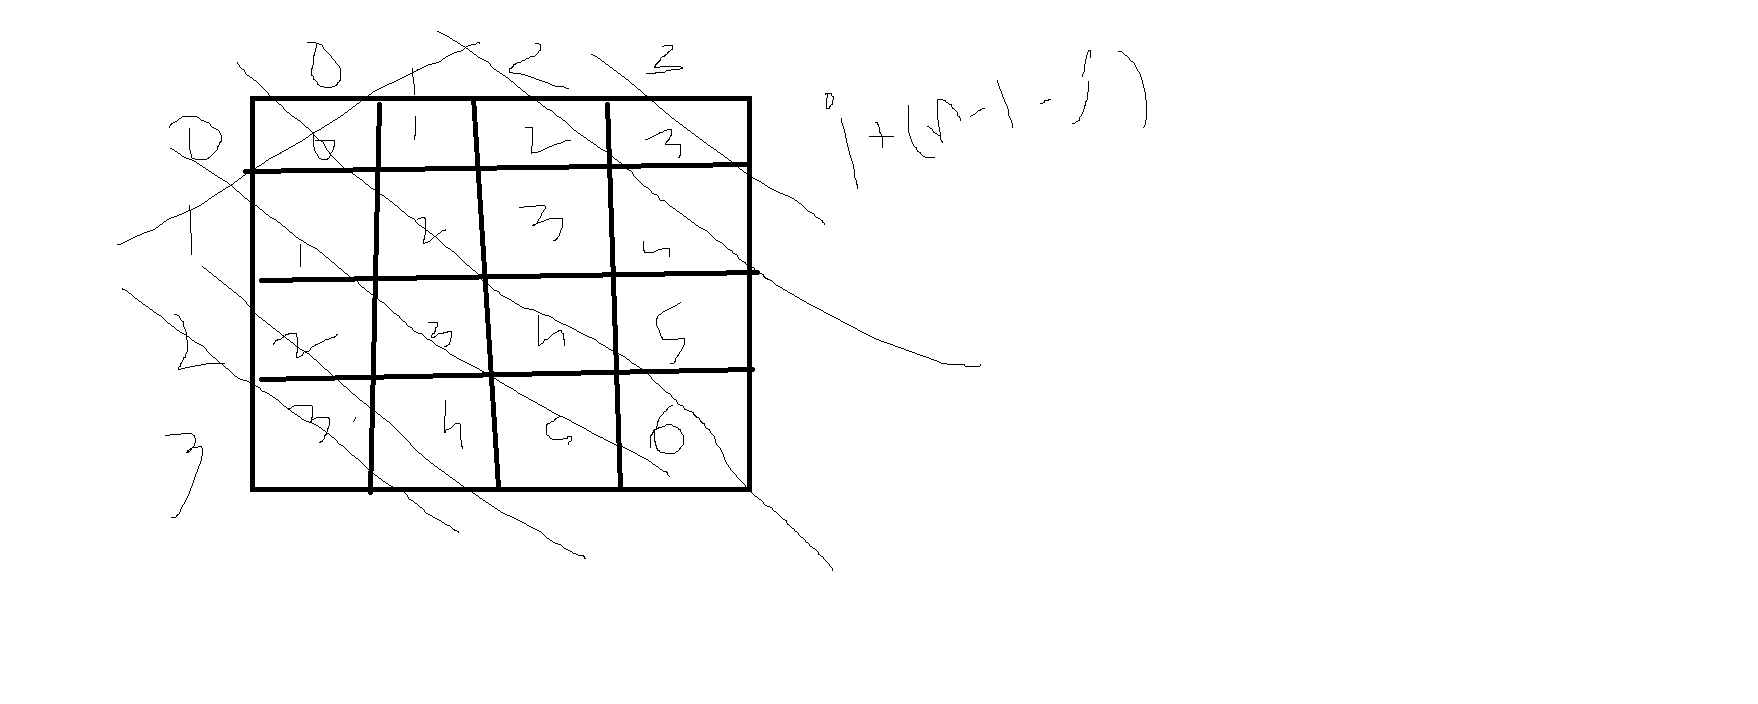 0 1 2 2
0 0 1 2 3
1 1 2 3 4
2 2 3 4 5
3 3 4 5 6
i+(n-1-j)